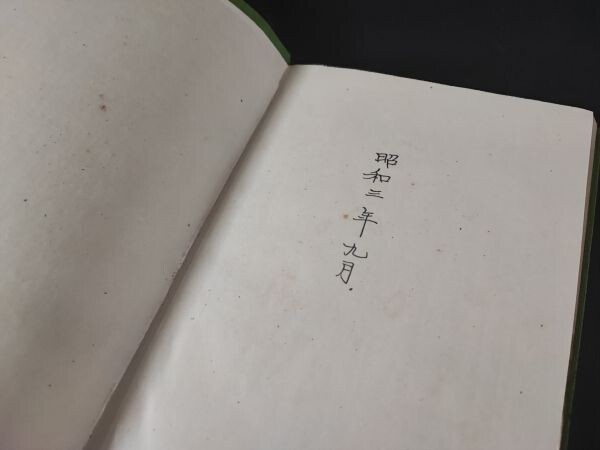 昭和三年九月.